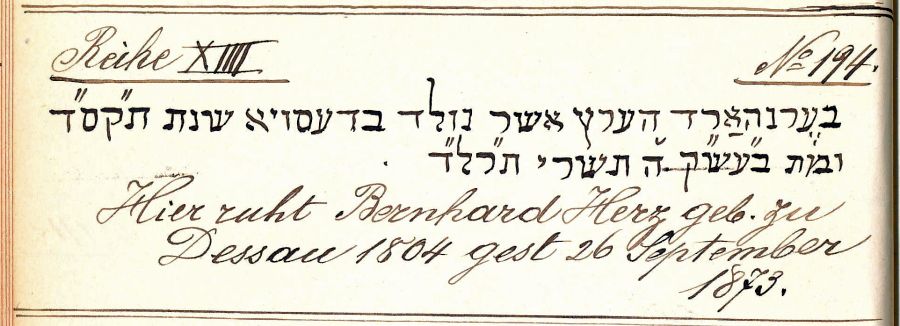 Reihe XIIII
No 194.
בערנהארד הערץ אשר נולד בדעסויא שנת תקס״ד
ומת בעש״ק ה תשרי תרל״ד
Hier ruht Bernhard Herz geb. zu
Dessau 1804 gest 26 September
1873.